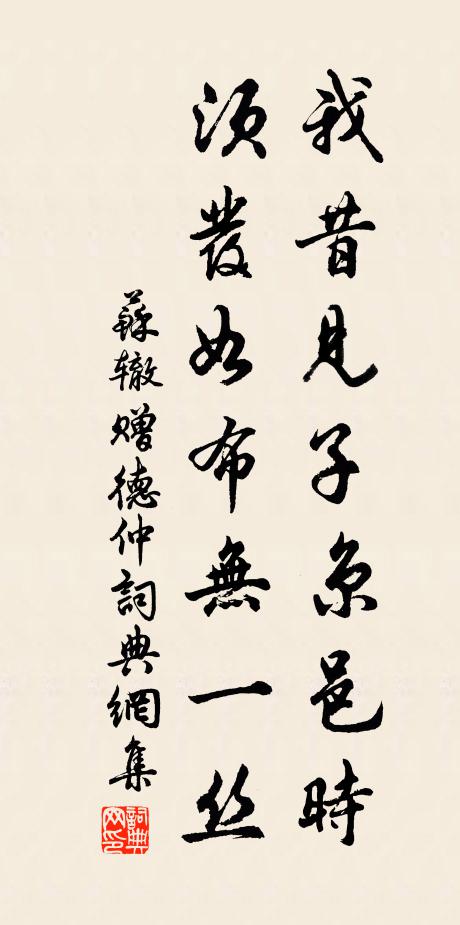 我昔見子京邑時
須發如布無一丝
蘇辙贈德仲詞典網集
詞典网印